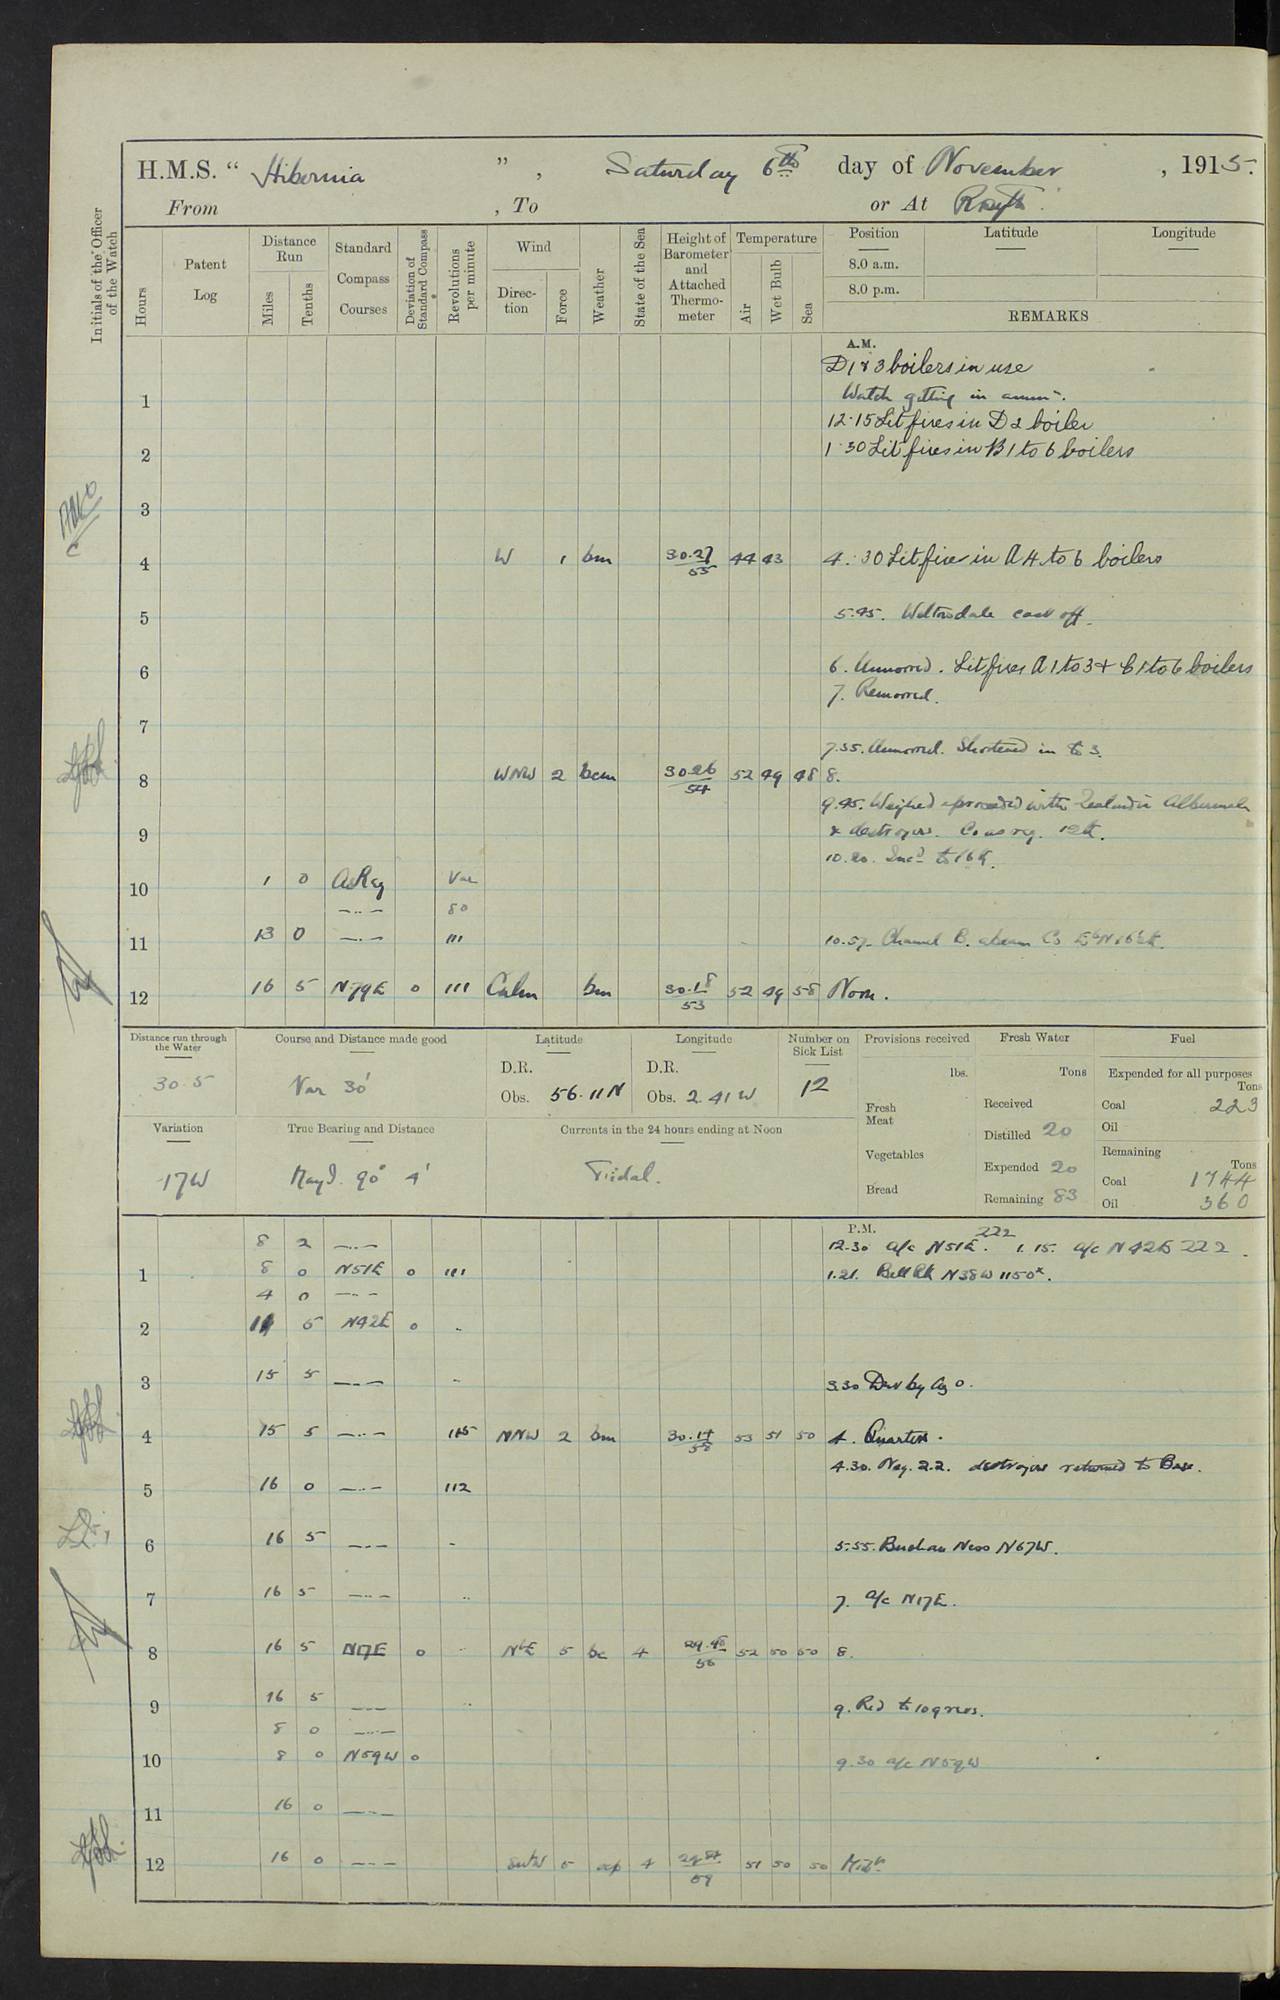 H.M.S. “ Hibernia ” , Saturday 6th day of November , 1915.
From , To or At Rosyth.
Initials of the Officer of the Watch
Hours
Patent Log
Distance Run
Miles
Tenths
Standard Compass Courses
Deviation of Standard Compass
Revolutions per minute
Wind
Direction
Force
Weather
State of the Sea
Height of Barometer and Attached Thermometer
Temperature
Air
Wet Bulb
Sea
Position
8.0 a.m.
8.0 p.m.
Latitude
Longitude
REMARKS
A.M.
D 1 & 3 boilers in use
1 Watch getting in ammn.
12.15 Lit fires in D 2 boiler
2 1.30 Lit fires in B 1 to 6 boilers
3
4 W 1 bm 30.27 55 44 43 4.30 Lit fires in A 4 to 6 boilers
5 5.45. cast off.
6 6. Unmoored. Lit fires A 1 to 3 + C 1 to 6 boilers
7. Remoored.
7
7.35. Unmoored. Shortened in to 3.
8 WNW 2 bcm 30.26 54 52 49 48 8.
9.45. Weighed & proceeded with Zealandia Albemarle
9 & destroyers. Co as req. 12k.
10.20. Incd to 16k.
10 1 0 As Req Var
—..— 80
11 13 0 —..— 111 10.57. Channel B. abeam Co EbN 16k.
12 16 5 N79E 0 111 Calm bm 30.18 53 52 49 58 Noon.
Distance run through the Water
30.5
Course and Distance made good
Var 30'
Latitude
D.R.
Obs. 56.11N
Longitude
D.R.
Obs. 2.41W
Number on Sick List
12
Provisions received
lbs.
Fresh Meat
Vegetables
Bread
Fresh Water
Tons
Received
Distilled 20
Expended 20
Remaining 83
Fuel
Expended for all purposes
Tons
Coal 223
Oil
Remaining
Tons
Coal 1744
Oil 360
Variation
17W
True Bearing and Distance
May I. 90° 4'
Currents in the 24 hours ending at Noon
Tidal.
P.M.
222
8 2 —..— 12.30 a/c N51E. 1.15. a/c N42E 222.
1 8 0 N51E 0 111 1.21. Bell Rk N38W 1150x.
4 0 —..—
2 11 5 N42E 0 ..
3 15 5 —..— .. 3.30 Divs by
4 15 5 —..— 115 NNW 2 bm 30.14 58 53 51 50 4. Quarters.
4.30. Neg. 2.2. destroyers returned to Base.
5 16 0 —..— 112
6 16 5 —..— .. 5.55. Buchan Ness N67W.
7 16 5 —..— .. 7. a/c N17E.
8 16 5 N17E 0 .. NbE 5 bc 4 56 52 50 50 8.
9 16 5 —..— .. 9. Red to revs.
8 0 —..—
10 8 0 N59W 0 9.30 a/c N59W
11 16 0 —..—
12 16 0 —..— 5 4 59 51 50 50 Midt.